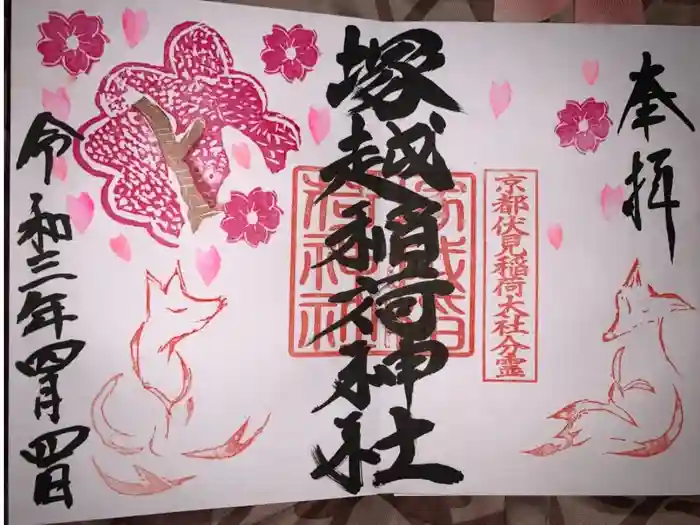 奉拝
京都伏見稲荷大社分霊
塚越稲荷神社
令和三年四月四日